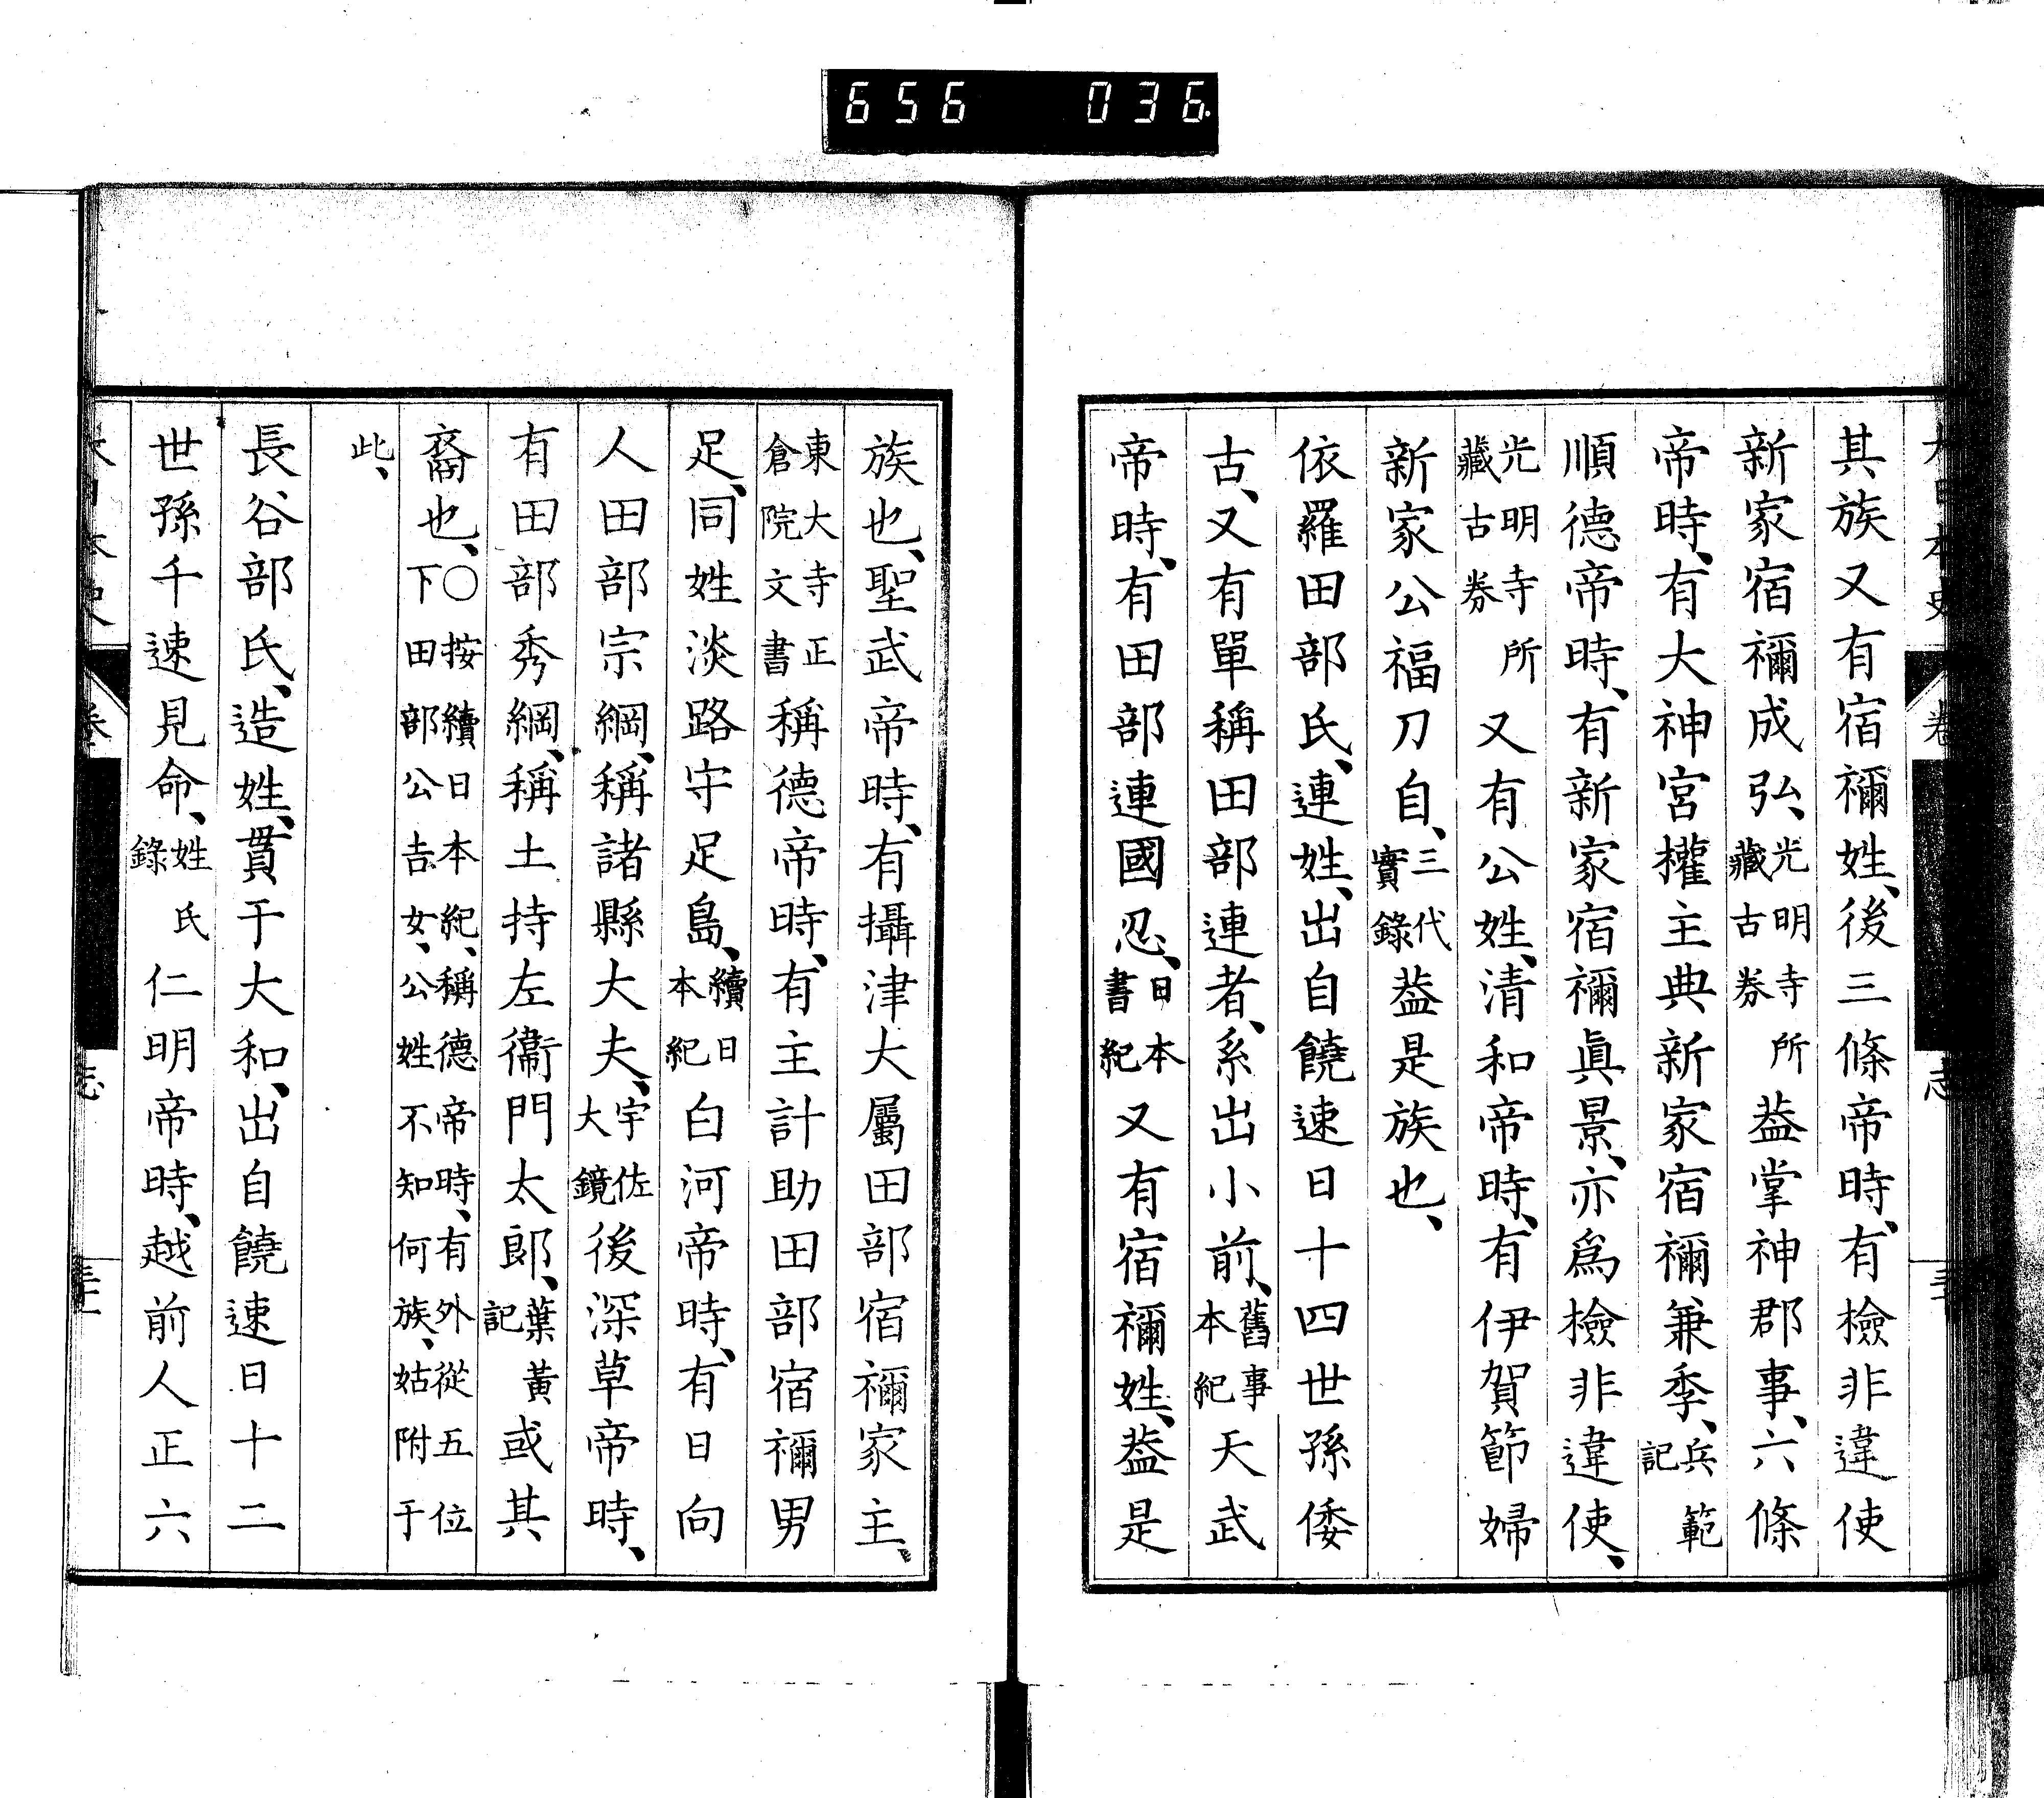 656 036
其族又有宿禰姓、後三條帝時、有檢非違使
新家宿禰成弘、光明寺所藏古券葢掌神郡事、六條
帝時、有大神宮權主典新家宿禰兼季、兵範記
順德帝時、有新家宿禰眞景、亦爲檢非違使、
光明寺所藏古券又有公姓、清和帝時、有伊賀節婦
新家公福刀自、三代實錄葢是族也、
依羅田部氏、連姓、出自饒速日十四世孫倭
古、又有單稱田部連者、系出小前、舊事本紀天武
帝時、有田部連國忍、日本書紀又有宿禰姓、葢是
族也、聖武帝時、有攝津大屬田部宿禰家主、
東大寺正倉院文書稱德帝時、有主計助田部宿禰男
足、同姓淡路守足島、續日本紀白河帝時、有日向
人田部宗綱、稱諸縣大夫、宇佐大鏡後深草帝時、
有田部秀綱、稱土持左衞門太郎、葉黃記或其
裔也、〇按續日本紀、稱德帝時、有外從五位下田部公吉女、公姓不知何族、姑附于
此、
長谷部氏、造姓、貫于大和、出自饒速日十二
世孫千速見命、姓氏錄仁明帝時、越前人正六